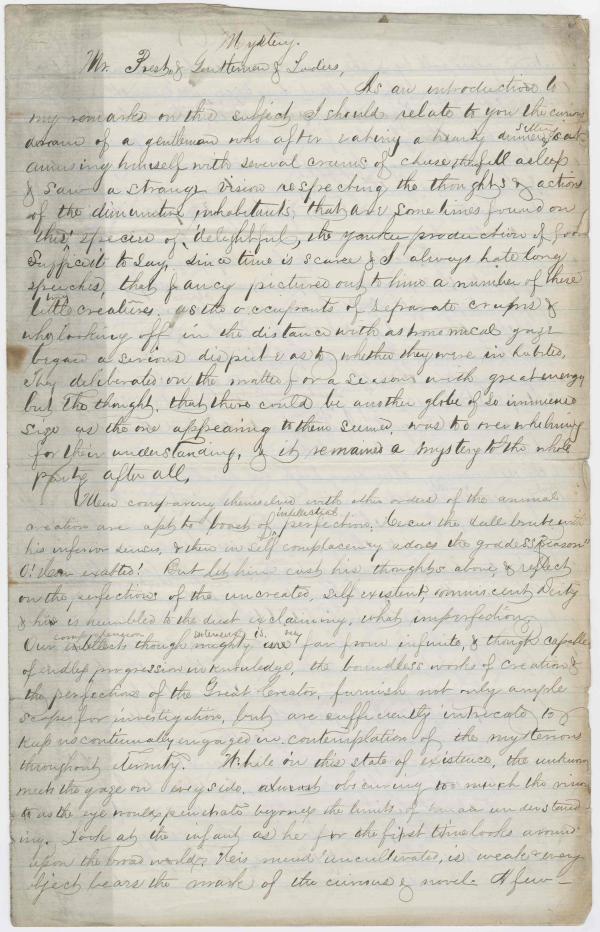 Mystery.
Mr. Prest, & Gentlemen & Ladies,
As an introduction to
my remarks on this subject I should relate to you the curious
dream of a gentleman who after eating a hearty dinner, & sat
sitting
amusing himself with several crums of cheese, he fell asleep
& saw a strange vision respecting the thoughts & actions
of the diminutive inhabitants, that are sometimes found on
this, specise of, delightful, the yankee production of food
Suffice it to say, since time is scarce & I always hate long
speeches, that fancy pictured out to him a number of these
little creatures, as the occupants of separate crums &
who looking off in the distance with astronomical gaze
began a serious dispute as to whether they were inhabited,
They deliberated on the matter for a season with great energy
but the thought, that there could be another globe of so immense
size as the one appearing to them seemed, was too overwhelming
for their understanding, & it remained a mystery to the whole
party after all,
Men comparing themselves with other orders of the animal
creation are apt to boast of perfection,
intellectual
the dull brute with
his inferior senses, & then in self complacency adores the goddess "reason"
O! How exalted! But let him cast his thoughts above, & reflect
on the perfections of the uncreated, self existent, omniscient Deity
& he is humbled to the dust exclaiming, what imperfection,
comprehension
Our intellects though mighty are far from infinite, & though capable
of endless progression in knowledge, the boundless works of creation &
the perfections of the Great Creator, furnish not only ample
scope for investigation, but are sufficiently intricate to
keep us continually engaged in contemplation of the mysterious
throughout eternity. While in this state of existence, the unknown
meets the gaze on every side, almost obscuring too much the vision
as the eye would penetrate beyond the limits of human understand-
ing. Look at the infant as he for the first time looks around
upon the broad world, His mind uncultivated, is weak & every
object bears the mark of the curious & novel. A few—